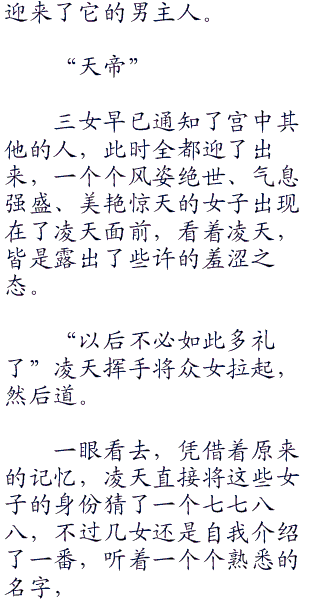 迎来了它的男主人。
“天帝”
三女早已通知了宫中其
他的人，此时全都迎了出
来，一个个风姿绝世、气息
强盛、美艳惊天的女子出现
在了凌天面前，看着凌天，
皆是露出了些许的羞涩之
态。
“以后不必如此多礼
了”凌天挥手将众女拉起，
然后道。
一眼看去，凭借着原来
的记忆，凌天直接将这些女
子的身份猜了一个七七八
八，不过几女还是自我介绍
了一番，听着一个个熟悉的
名字，